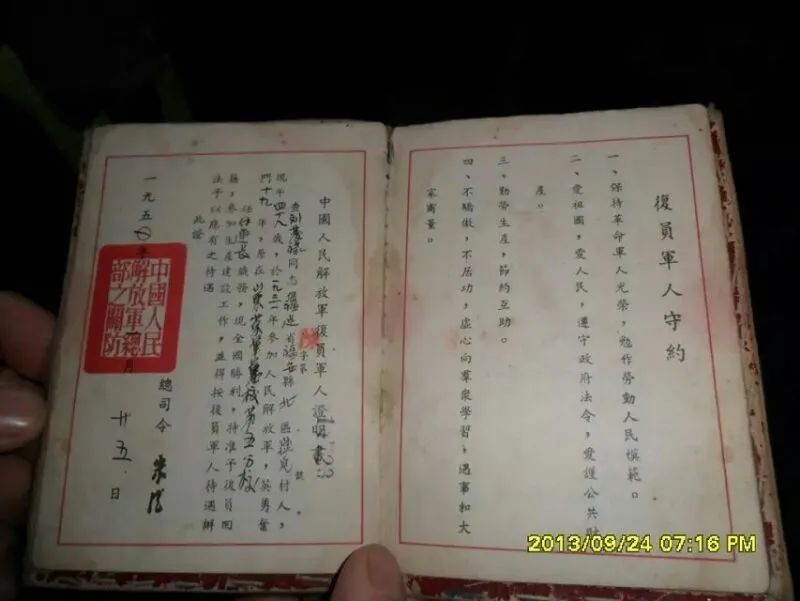 復員軍人守約
一、保持革命軍人光榮，勉作勞動人民模範。
二、愛祖國，愛人民，遵守政府法令，愛護公共財
產。
三、勤勞生產，節約互助。
四、不驕傲，不居功，虛心向羣衆學習，遇事和大
家商量。
中國人民解放軍復員軍人證明書
字第 號
查劉 同志福建省福安縣北區 村人，
現年四十八歲，於一九三一年參加人民解放軍，英勇奮
鬥十九年，原在山東 軍 校第五分校
任 長職務，現全國勝利，特准予復員回
籍，參加生產建設工作，並得按復員軍人待遇辦
法予以應有之待遇
此證
總司令 朱德
一九五〇年 月廿五日
中國人民
解放軍總
部之關防
2013/09/24 07:16 PM